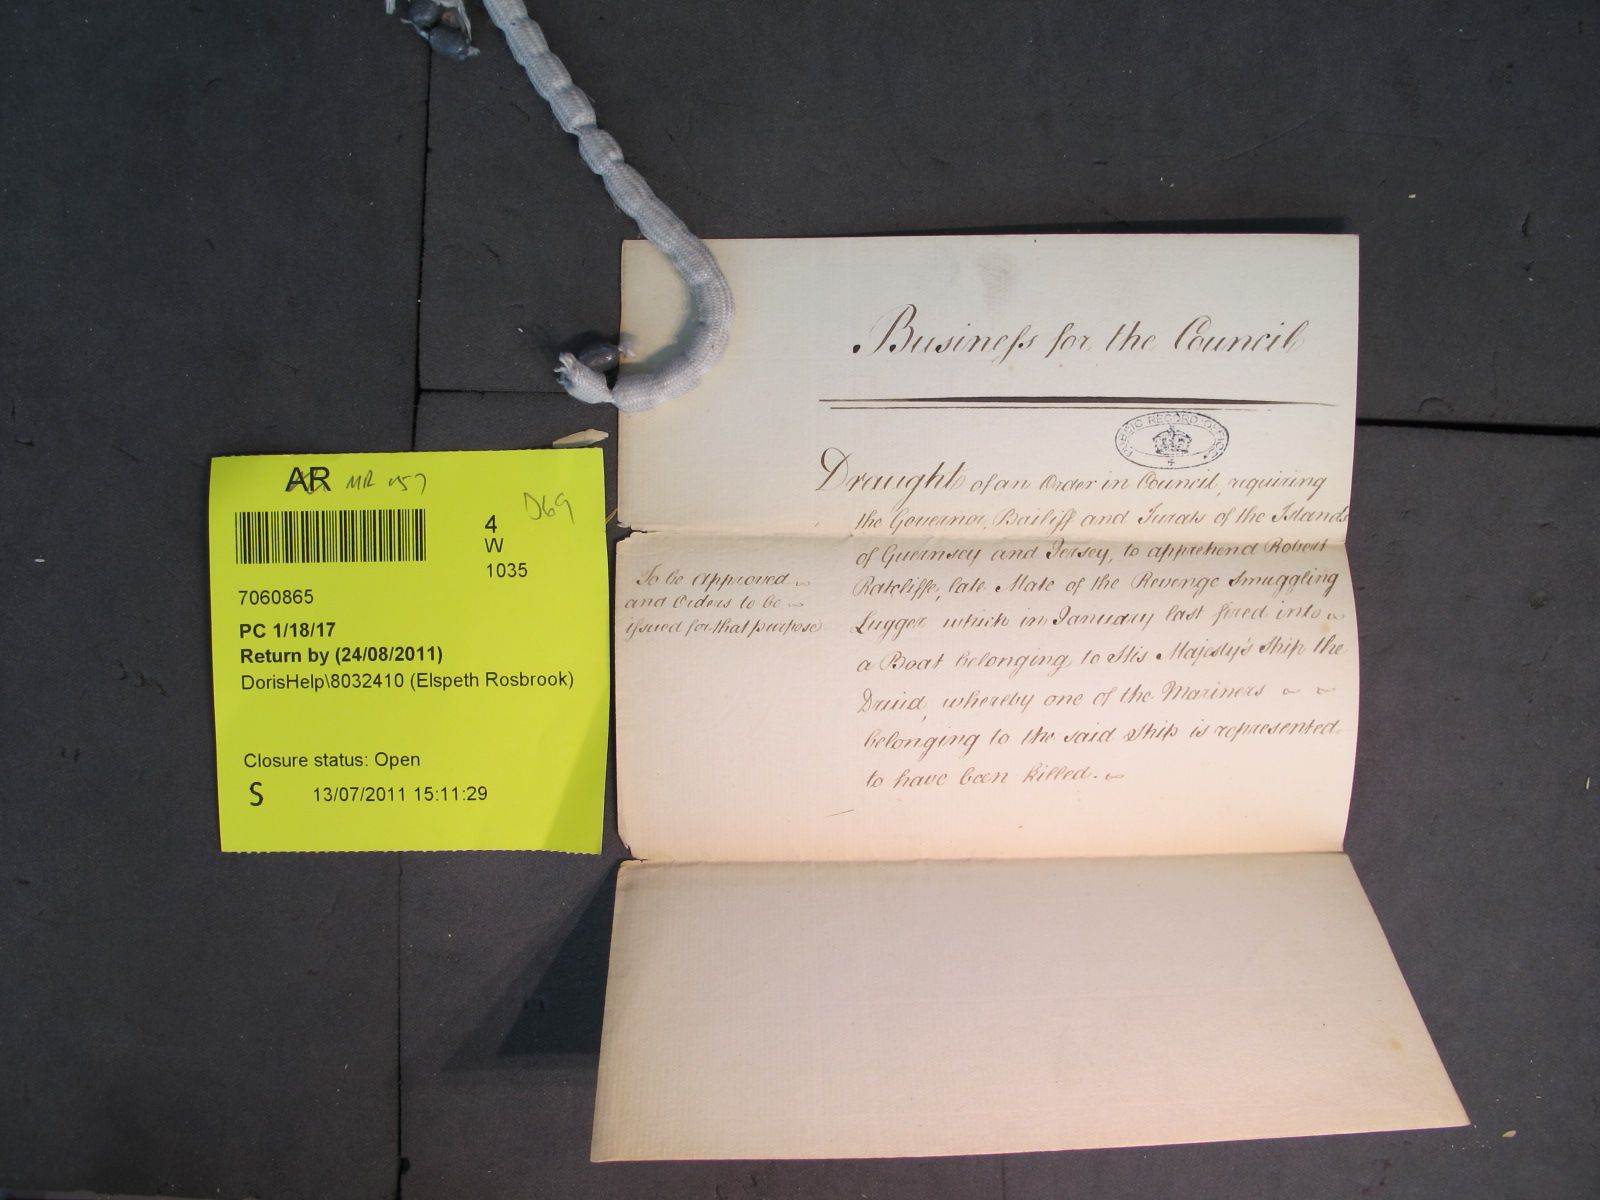 Business for the Council
PUBLIC RECORD OFFICE
Draught of an Order in Council, requiring
the Governor, Bailiff and Jurats of the Islands
of Guernsey and Jersey, to apprehend Robert
Ratcliffe, late Mate of the Revenge Smuggling
Lugger which in January last fired into
a Boat belonging to His Majesty's Ship the
Druid, whereby one of the Mariners
belonging to the said Ship is represented
to have been killed.
To be approved
and Orders to be
issued for that purpose
AR MR 057
D69
4
W
1035
7060865
PC 1/18/17
Return by (24/08/2011)
DorisHelp\8032410 (Elspeth Rosbrook)
Closure status: Open
S 13/07/2011 15:11:29